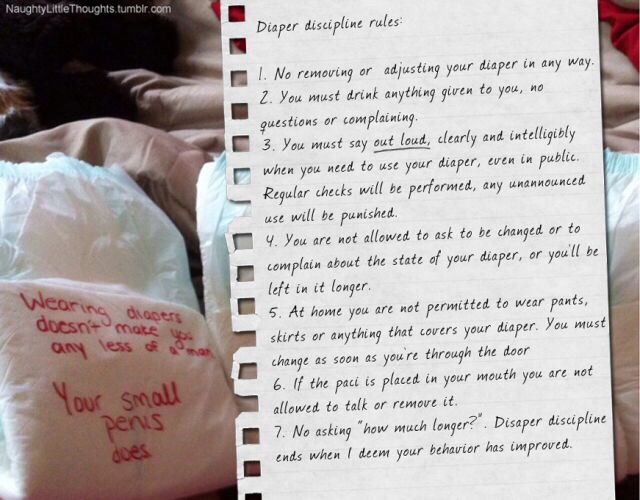 NaughtyLittleThoughts.tumblr.com
Diaper discipline rules:
1. No removing or adjusting your diaper in any way.
2. You must drink anything given to you, no
questions or complaining.
3. You must say out loud, clearly and intelligibly
when you need to use your diaper, even in public.
Regular checks will be performed, any unannounced
use will be punished.
4. You are not allowed to ask to be changed or to
complain about the state of your diaper, or you'll be
left in it longer.
5. At home you are not permitted to wear pants,
skirts or anything that covers your diaper. You must
change as soon as you're through the door
6. If the paci is placed in your mouth you are not
allowed to talk or remove it.
7. No asking "how much longer?". Disaper discipline
ends when I deem your behavior has improved.
Wearing diapers
doesn't make you
any less of a man
Your small
penis
does